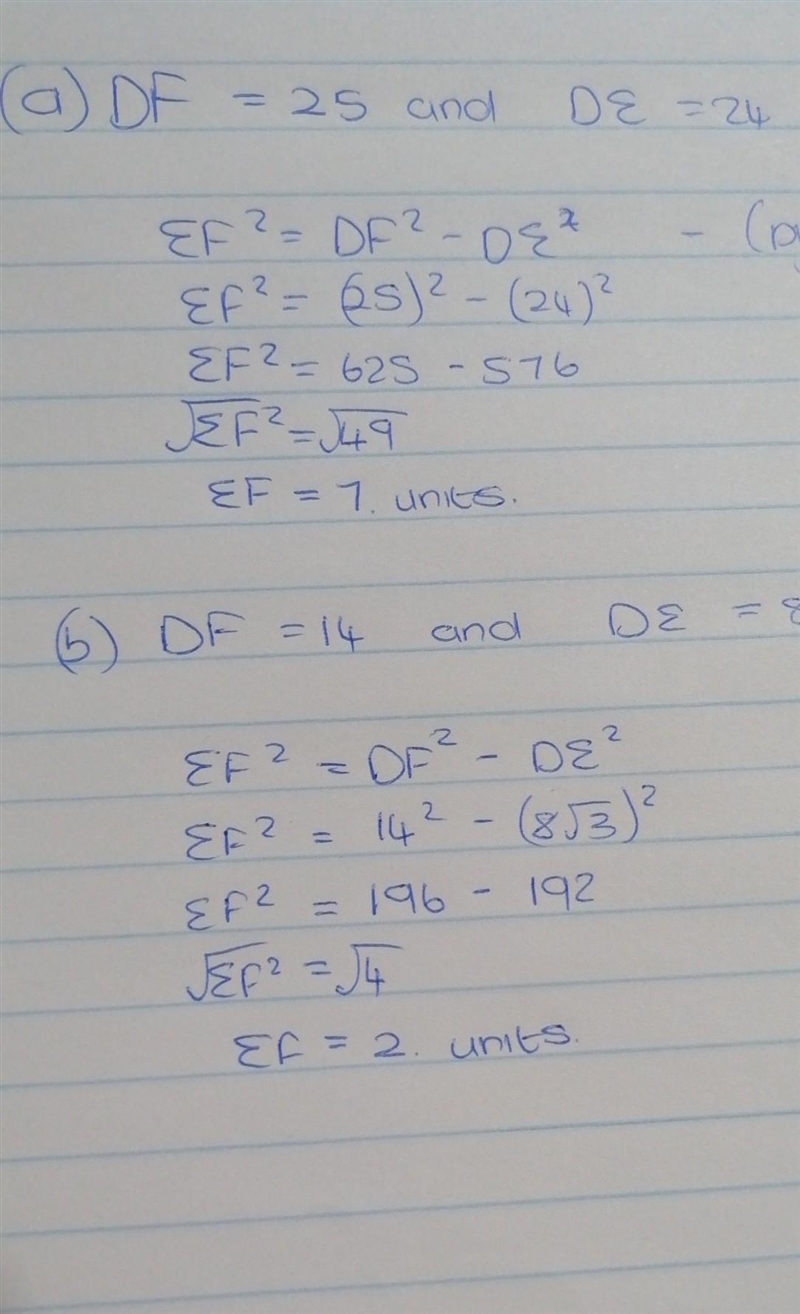 (a) DF = 25 and DE = 24
EF² = DF² - DE² - (py
EF² = (25)² - (24)²
EF² = 625 - 576
√EF² = √49
EF = 7. units.
(b) DF = 14 and DE = 8
EF² = DF² - DE²
EF² = 14² - (8√3)²
EF² = 196 - 192
√EF² = √4
EF = 2. units.